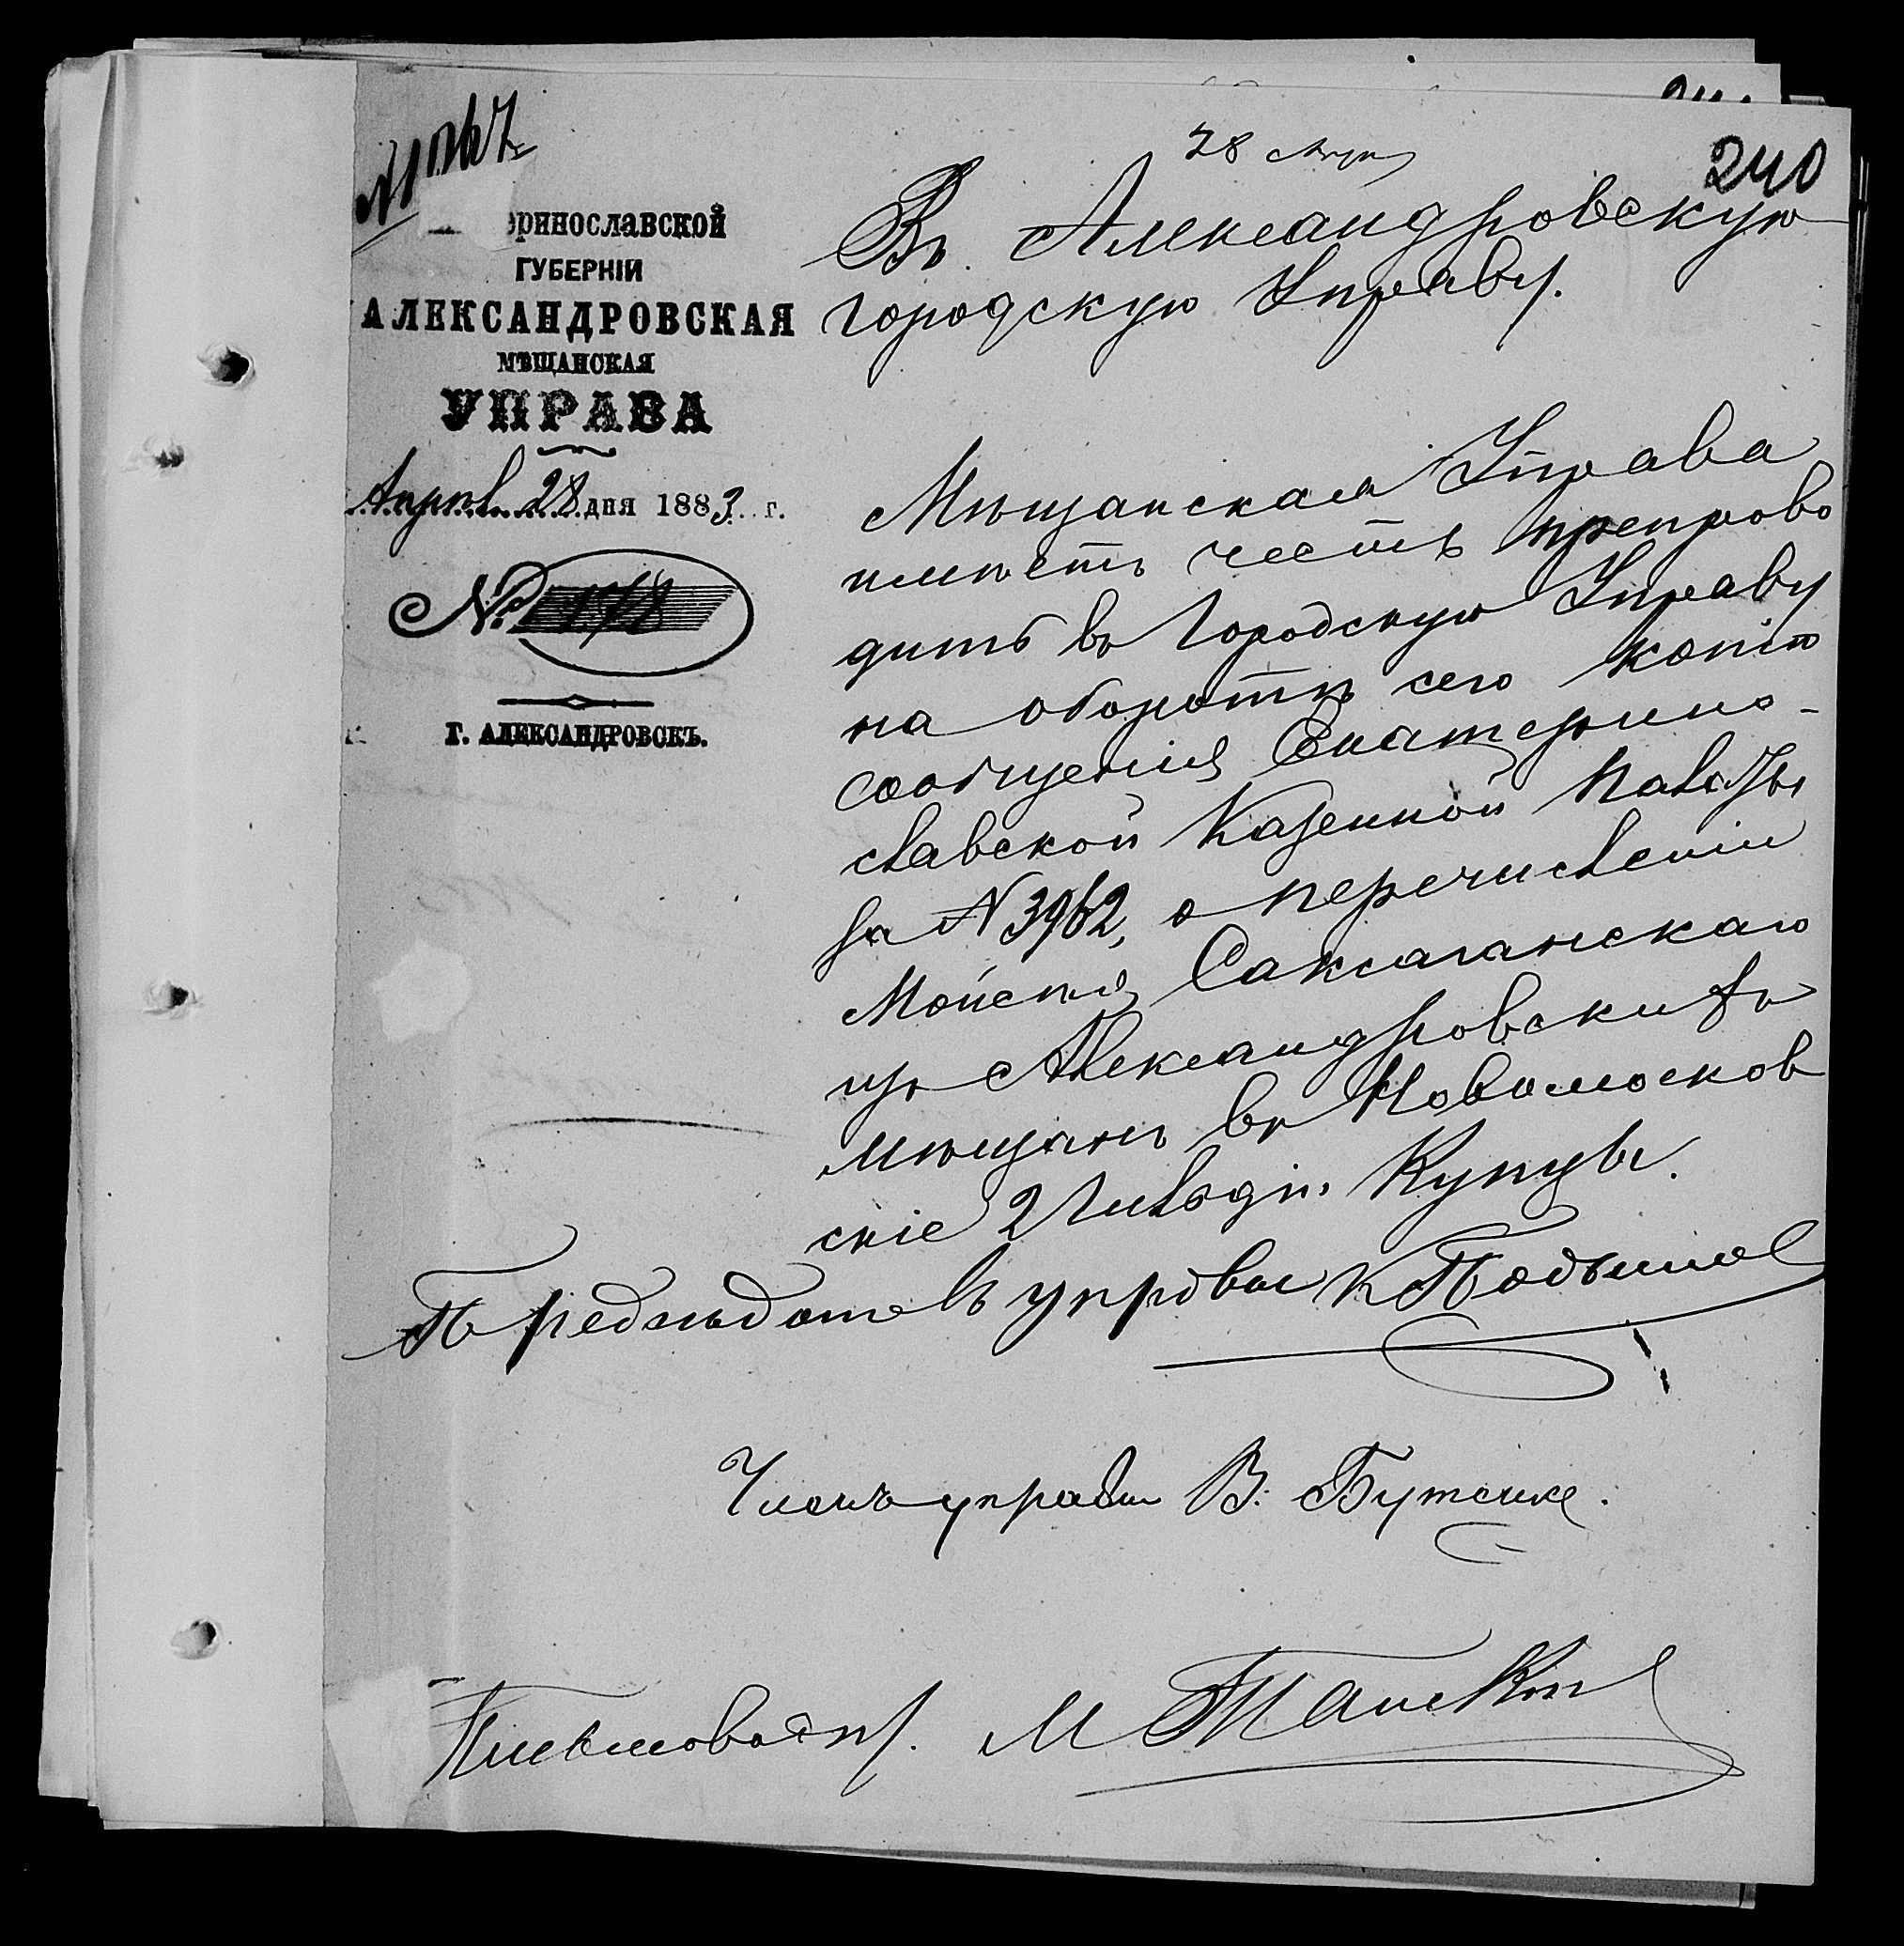 240
28 Апр
ринославской
ГУБЕРНІИ
АЛЕКСАНДРОВСКАЯ
МѢЩАНСКАЯ
УПРАВА
Апрѣл. 28 дня 1883 г.
№ 178
Г. АЛЕКСАНДРОВСКЪ.
Въ Александровскую
Городскую Управу.
Мѣщанская Управа
имѣетъ честь препрово
дить въ Городскую Управу
на оборотѣ сего копію
сообщенія Екатерино-
славской Казенной Палаты
за N 3962, о перечисленіи
Мойсея Саксаганскаго
изъ Александровскихъ
мѣщанъ въ Новомосков
скіе 2 Гильдіи Купцы.
Предсѣдатель управы К
Членъ управы В. Бутенко.
Письмоводит. М